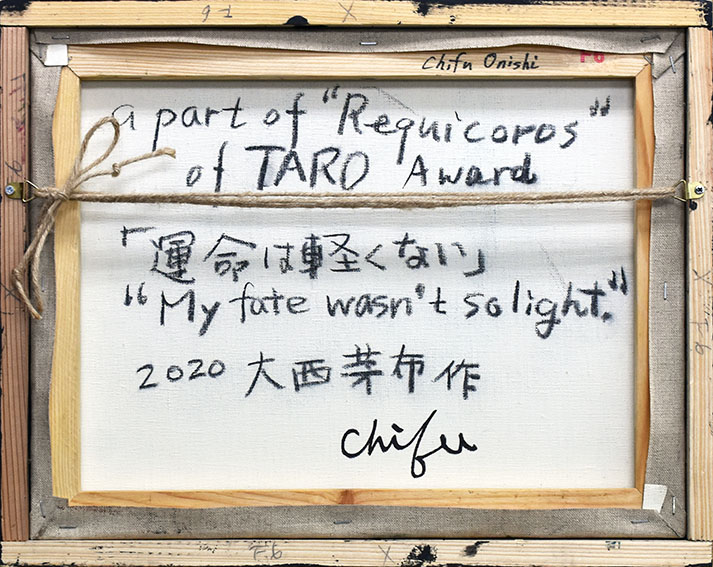 F6 X
Chifu Onishi F6
a part of "Requicoros"
of TARO Award
「運命は軽くない」
"My fate wasn't so light."
2020 大西茅布作
chifu
F.6 X